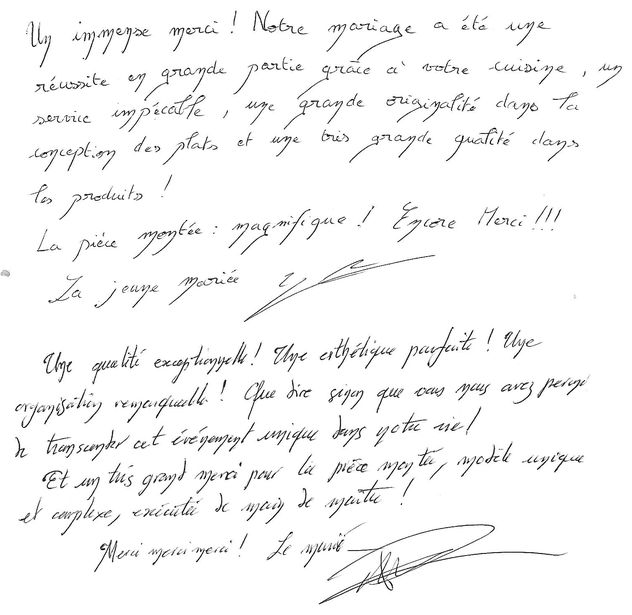 Un immense merci ! Notre mariage a été une
réussite en grande partie grâce à votre cuisine, un
service impécable, une grande originalité dans la
conception des plats et une très grande qualité dans
les produits !
La pièce montée : magnifique ! Encore Merci !!!
La jeune mariée
Une qualité exceptionnelle ! Une esthétique parfaite ! Une
organisation remarquable ! Que dire sinon que vous nous avez permis
de transcender cet événement unique dans notre vie !
Et un très grand merci pour la pièce montée, modèle unique
et complexe, exécutée de main de maître !
Merci merci merci ! Le marié